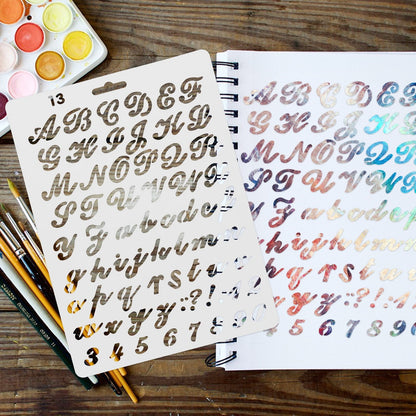 13
A B C D E F
G H I J K L
M N O P Q R
S T U V W X
Y Z a b c d e f
g h i j k l m n
o p q r s t u v
w x y z : ? ! 1 2
3 4 5 6 7 8 9 0
A B C D E F
G H I J K L
M N O P Q R
S T U V W
Y Z a b c d e
g h i j k l m
p q r s t u
x y z : ? ! 1
5 6 7 8 9 0